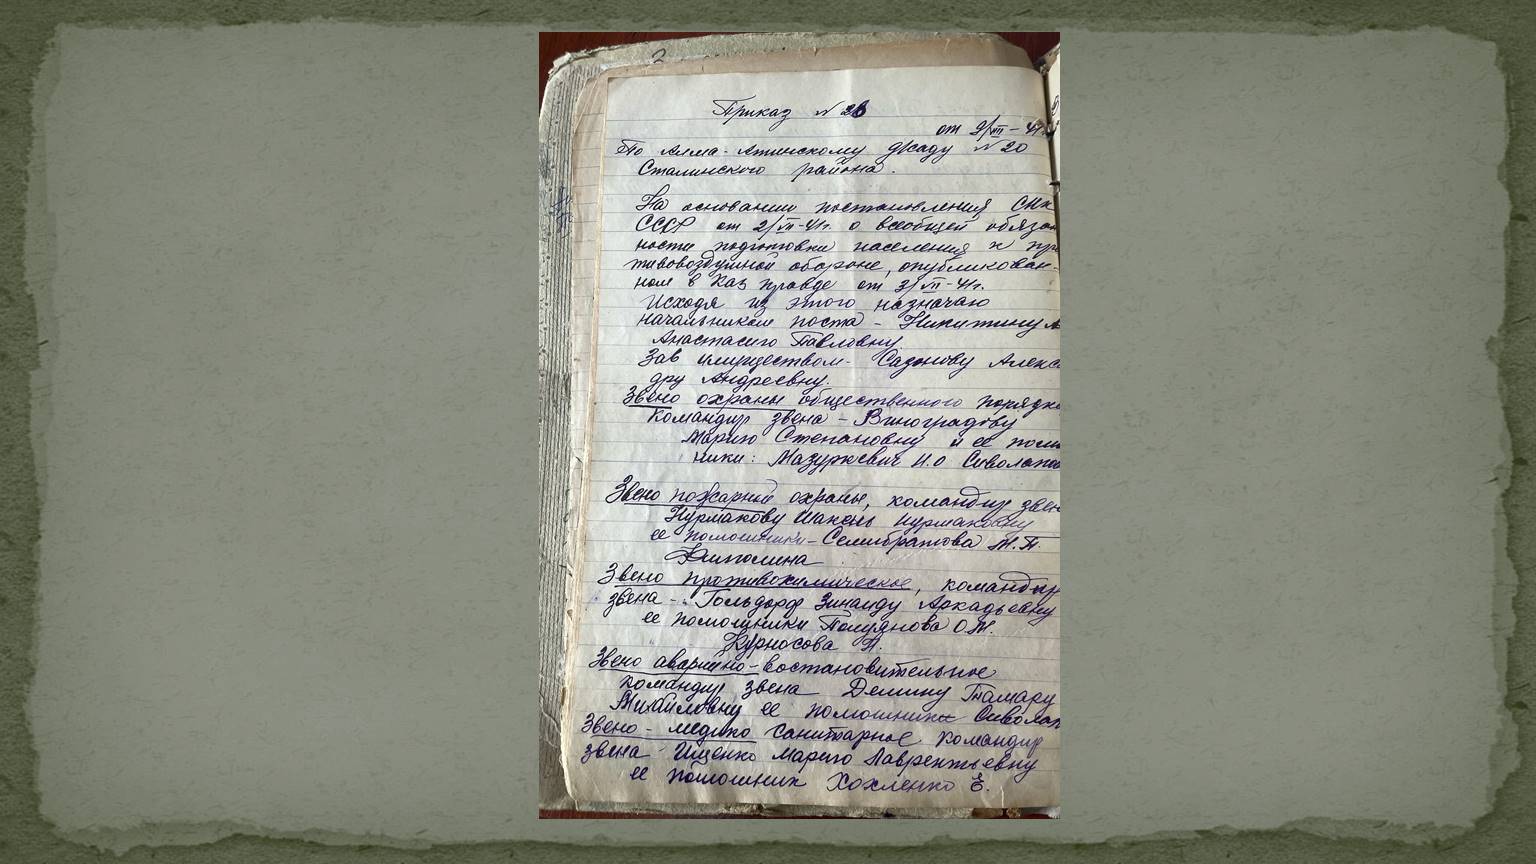 Приказ № 28
от 9/VIII-41г.
По Алма-Атинскому д/саду № 20
Сталинского района.
На основании постановления СНК
СССР от 2/VII-41г. о всеобщей обязан
ности подготовки населения к про
тивовоздушной обороне, опубликован-
ном в Каз правде от 3/VII-41г.
Исходя из этого назначаю
начальником поста - Никитину
Анастасию Павловну.
Зав имуществом - Сазонову Алекса
дру Андреевну.
Звено охраны общественного порядка
Командир звена - Виноградову
Марию Степановну и ее помощ
ники: Мазуркевич И.О
Звено пожарной охраны, командир звена
Нурмакову Шакень Нурмаковну
ее помошники - Селибратова М.П.
Звено противохимическое, командир
звена - Гольдорф Зинаиду Аркадьевну
ее помошники Полуянова О.М.
Курносова П.
Звено аварийно-востановительное
командир звена Демину Тамару
Михайловну ее помошник
Звено - медико санитарное командир
звена Ищенко Марию Лаврентьевну
ее помошник Хохленко Е.